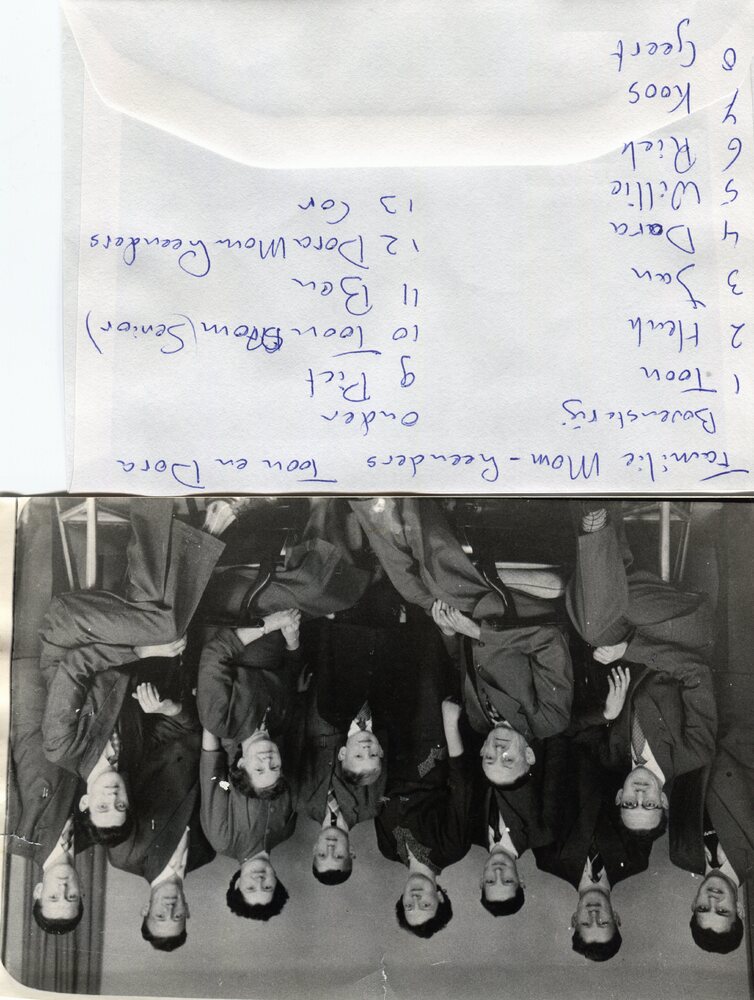 Familie Mom-Geenders Toon en Dora
Bovenste rij
1 Toon
2 Henk
3 Jan
4 Dora
5 Willie
6 Riek
7 Koos
8 Geert
onder
9 Piet
10 Toon Mom (Senior)
11 Ben
12 Dora Mom Geenders
13 Cor